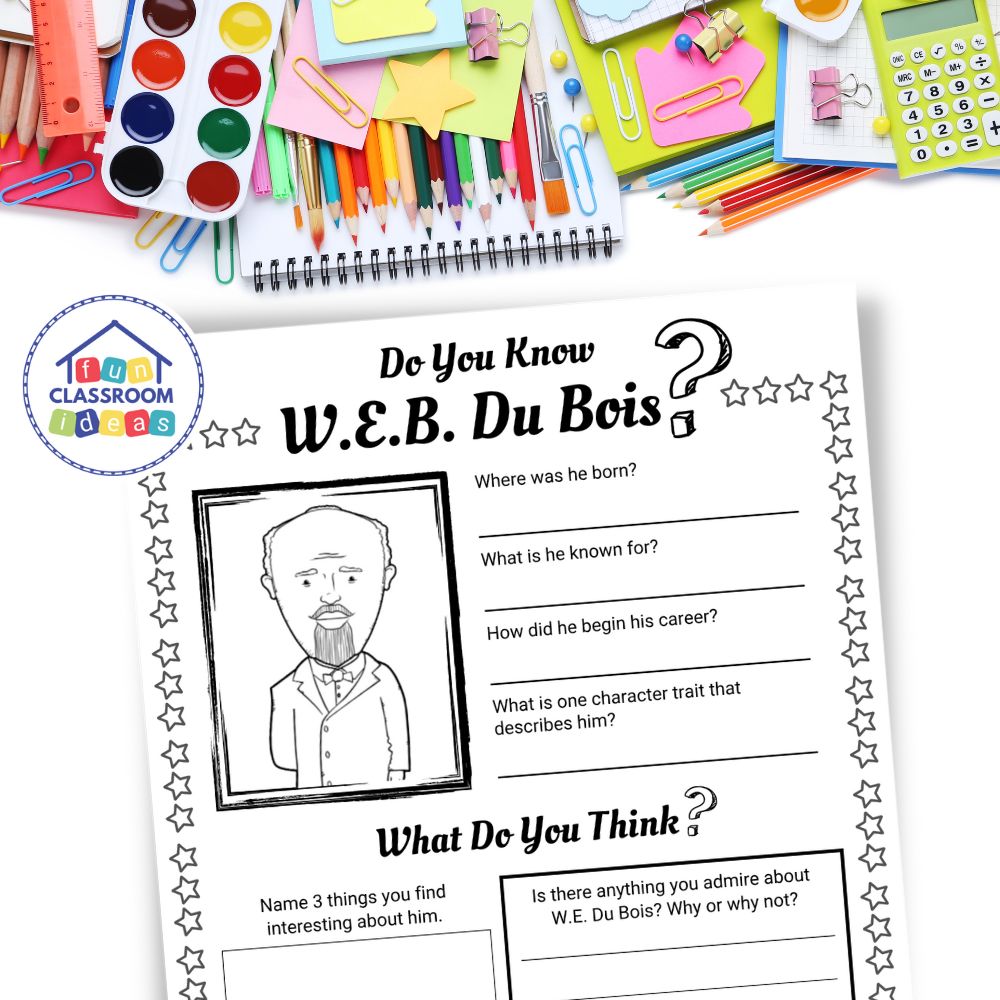 ONC
CE
√
%
÷
MRC
M-
M+
÷
7
8
9
×
4
5
6
-
1
2
3
+
0
•
=
fun
CLASSROOM
ideas
Do You Know
W.E.B. Du Bois?
Where was he born?
What is he known for?
How did he begin his career?
What is one character trait that
describes him?
What Do You Think?
Name 3 things you find
interesting about him.
Is there anything you admire about
W.E. Du Bois? Why or why not?